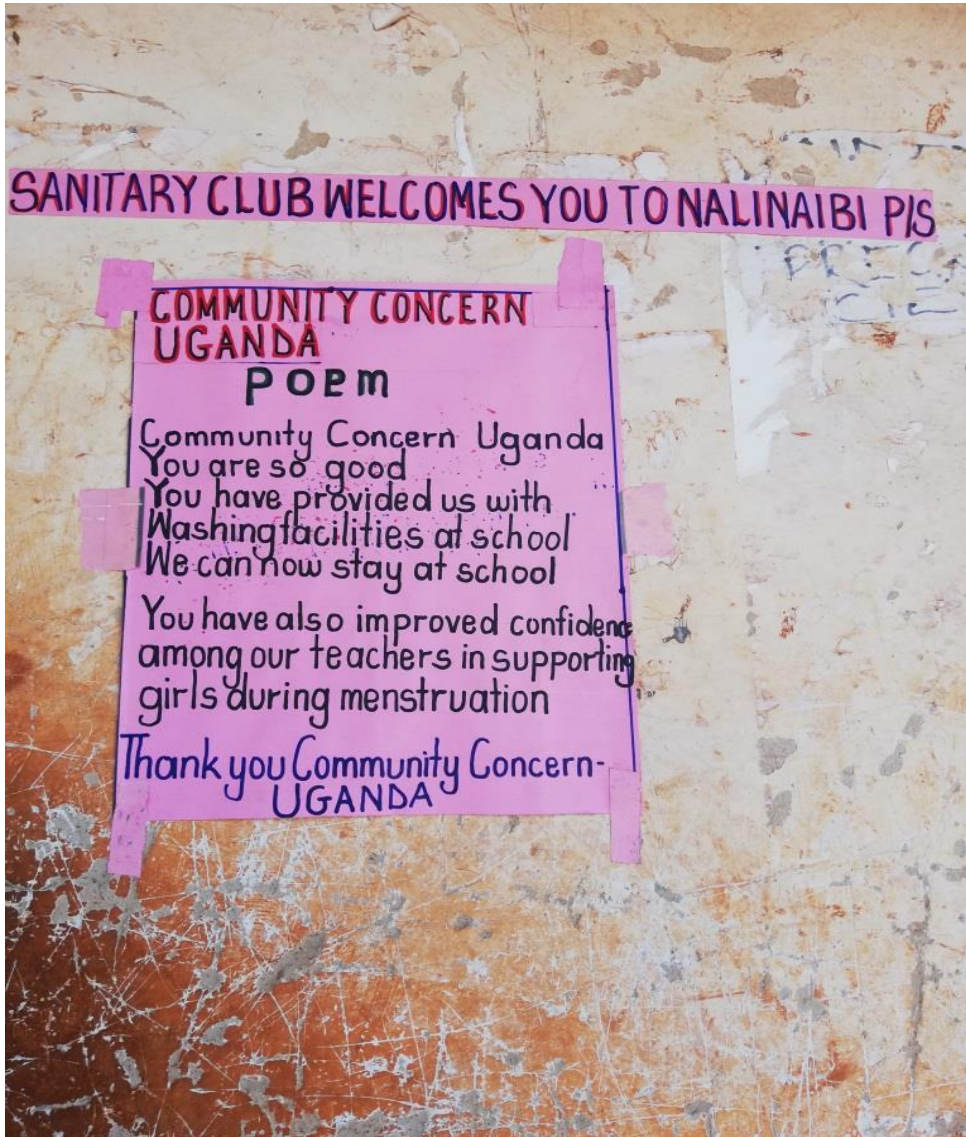 SANITARY CLUB WELCOMES YOU TO NALINAIBI P/S
COMMUNITY CONCERN
UGANDA
POEM
Community Concern Uganda
You are so good
You have provided us with
Washing facilities at school
We can now stay at school
You have also improved confidence
among our teachers in supporting
girls during menstruation
Thank you Community Concern-
UGANDA